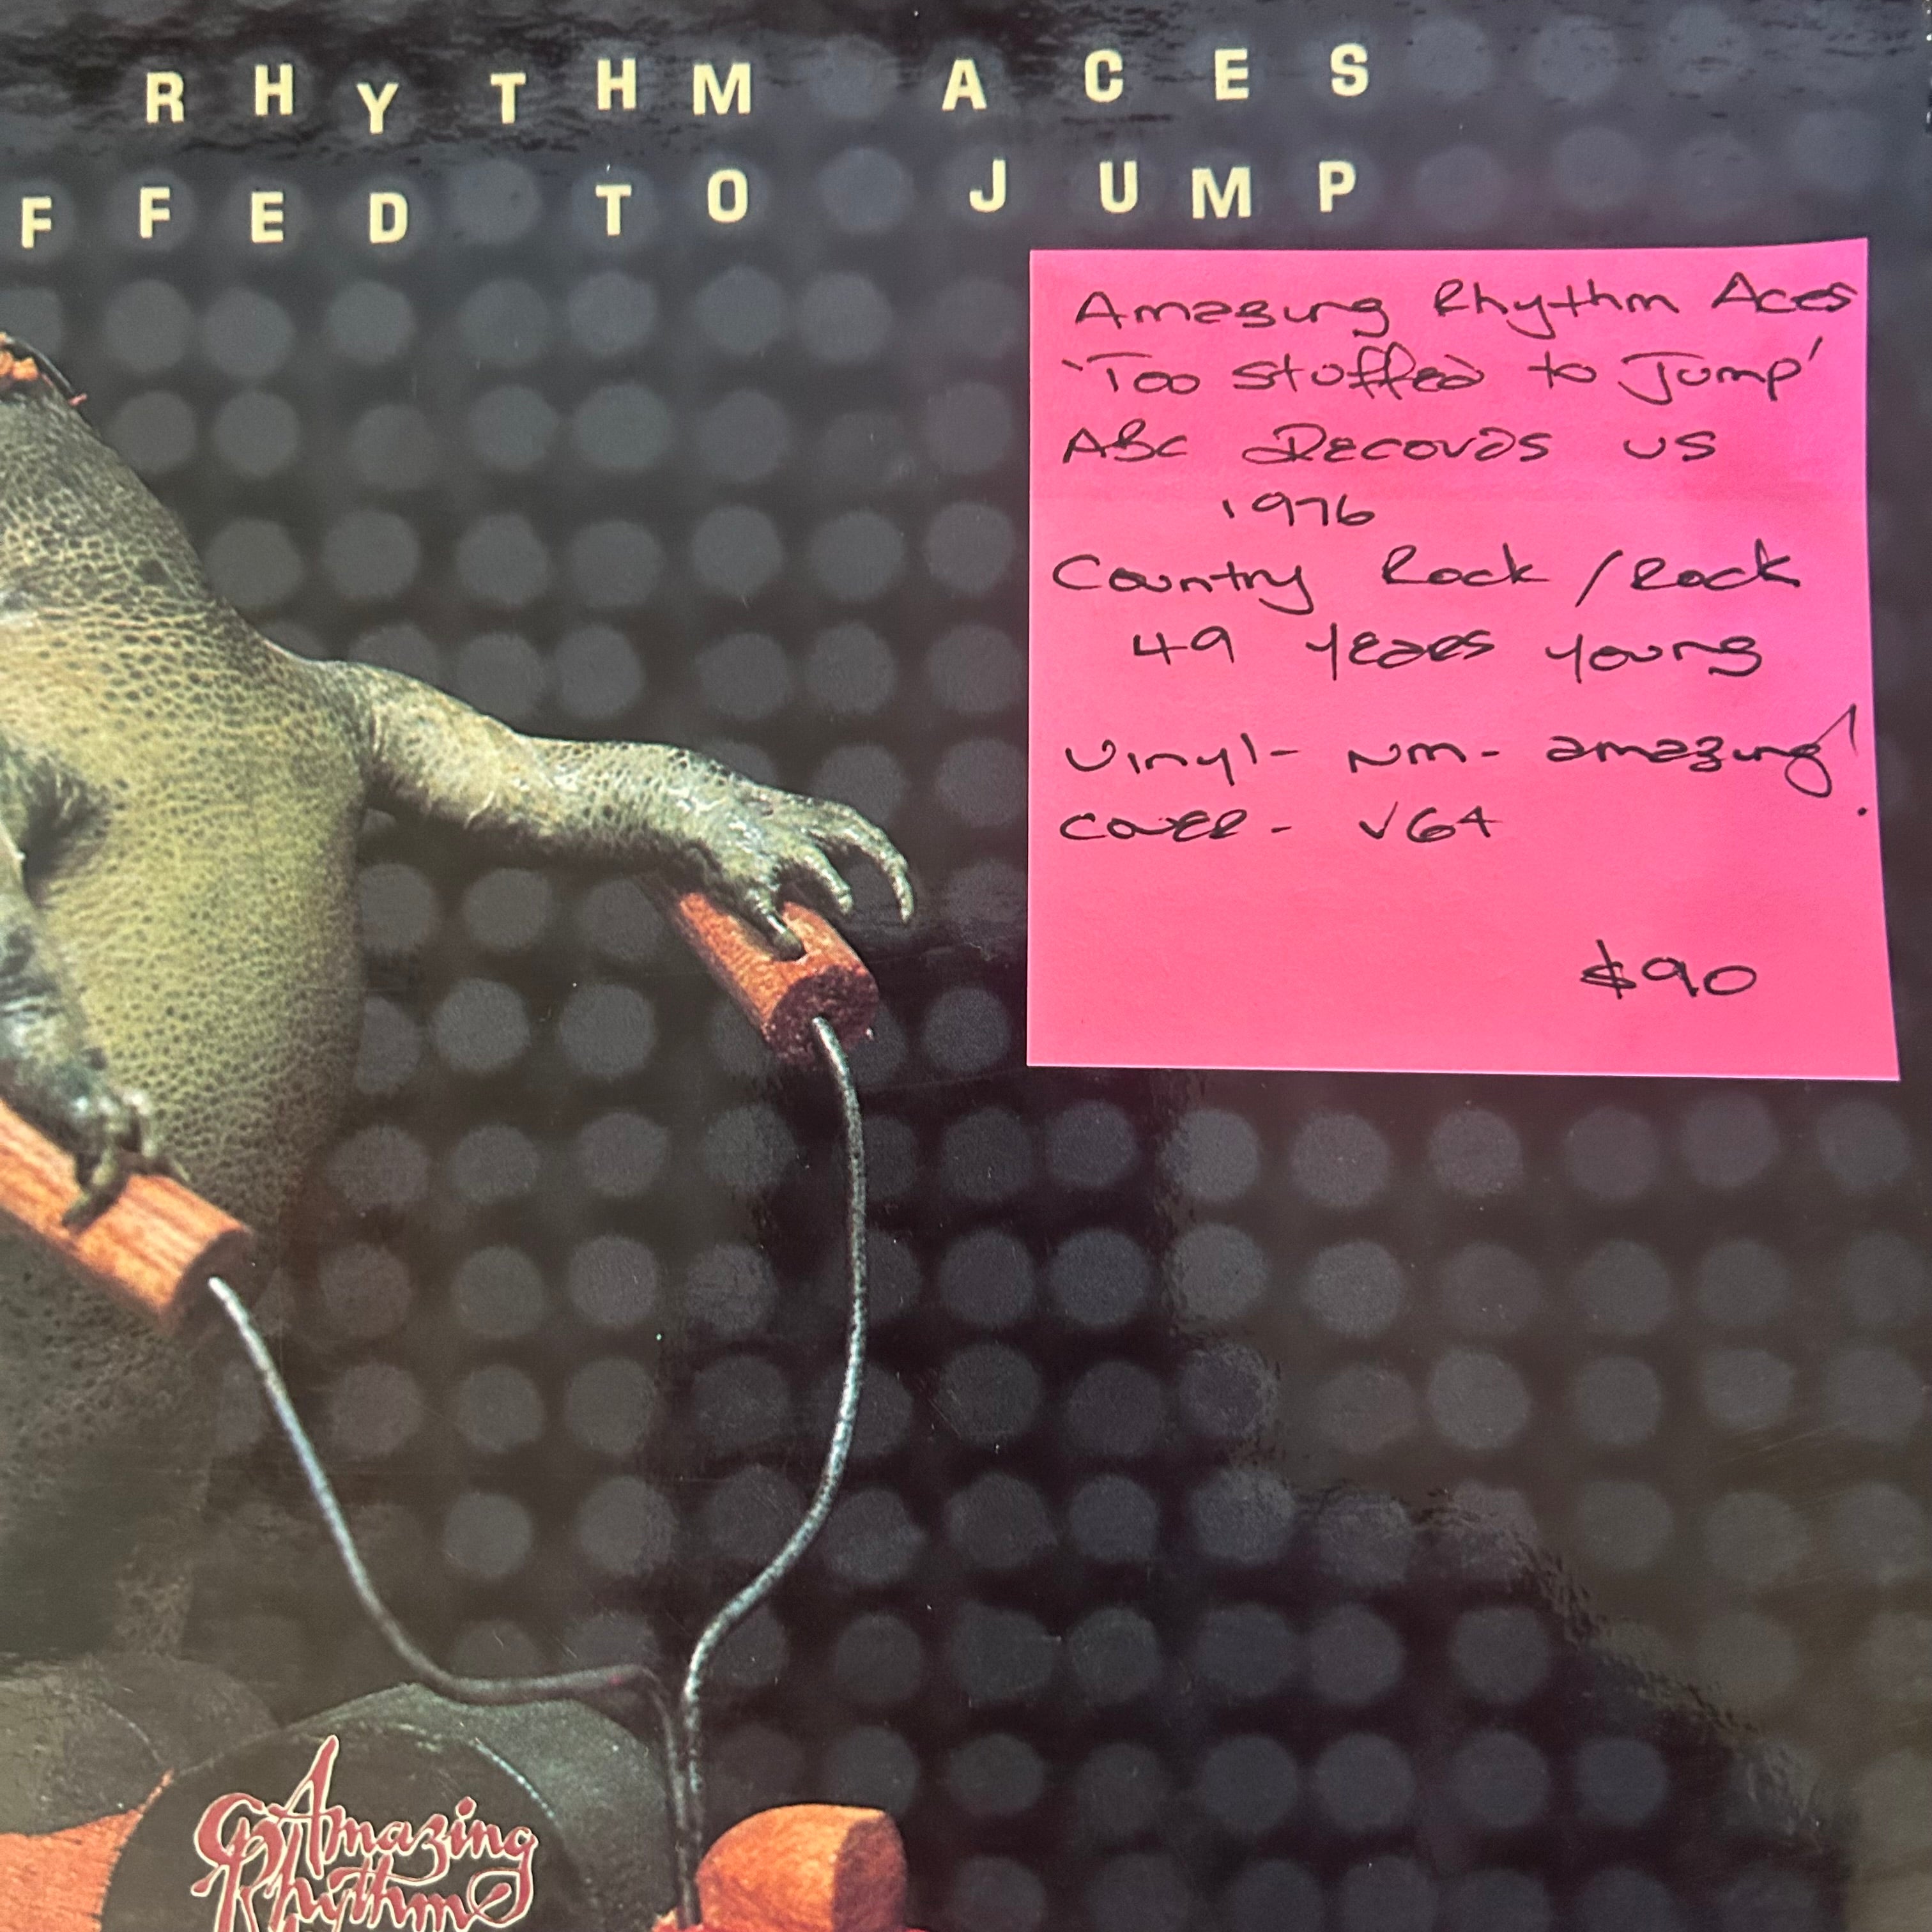 RHYTHM ACES
FFED TO JUMP
Amazing Rhythm Aces
'Too Stuffed to Jump'
ABC Records US
1976
Country Rock / Rock
49 Years Young
Vinyl - NM - amazing!
Cover - VG+
$90
Amazing
Rhythm